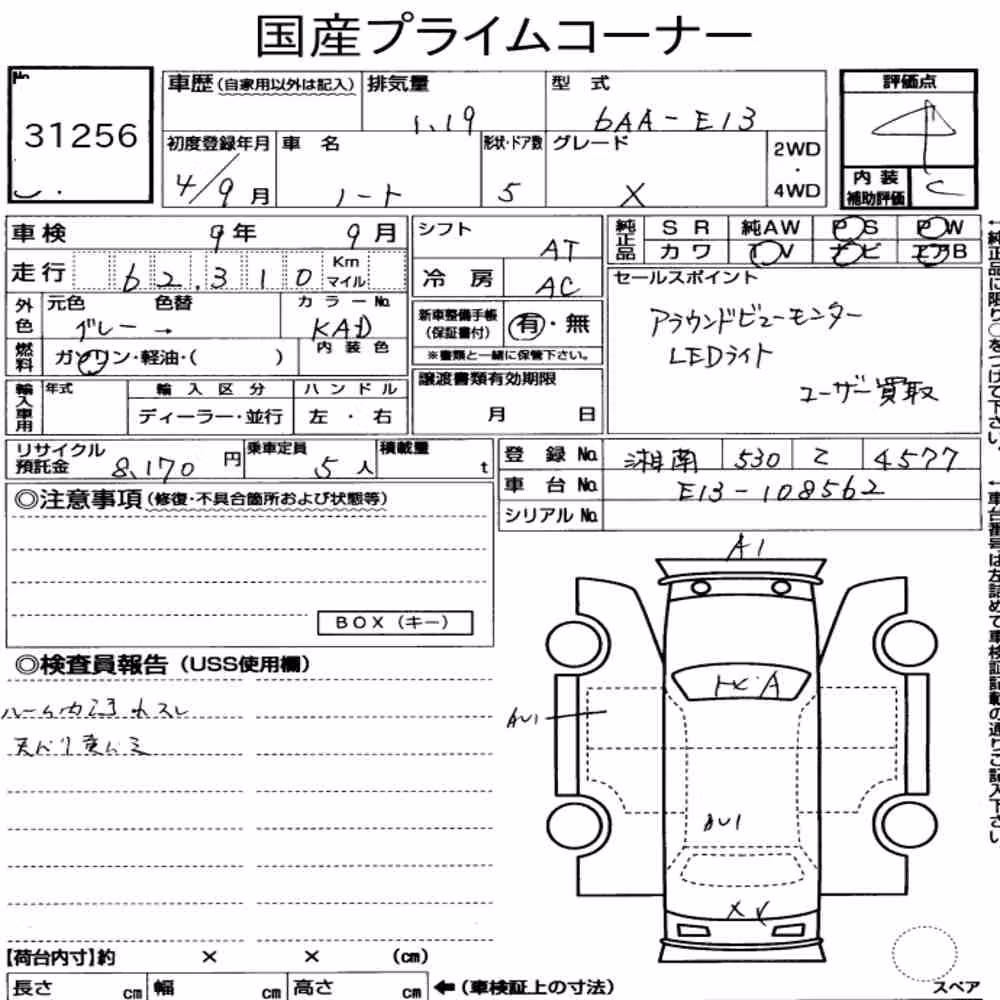 国産プライムコーナー
No.
31256
車歴(自家用以外は記入)
排気量
1.19
型式
6AA-E13
評価点
4
初度登録年月
4/9月
車名
ノート
形状・ドア数
5
グレード
X
2WD
・
4WD
内装
補助評価
C
車検 9年 9月
走行 62,310 Km
マイル
外色
元色 色替
グレー →
カラーNo.
KAD
燃料
ガソリン・軽油・( )
内装色
輸入車用
年式
輸入区分
ディーラー・並行
ハンドル
左・右
シフト
AT
冷房
AC
新車整備手帳
(保証書付)
有・無
※書類と一緒に保管下さい。
譲渡書類有効期限
月 日
純正品
SR 純AW PS PW
カワ TV ナビ エアB
セールスポイント
アラウンドビューモンター
LEDライト
ユーザー買取
←純正品に限り○をつけて下さい。
リサイクル
預託金
8,170円
乗車定員
5人
積載量
t
登録No. 湘南 530 て 4577
車台No. E13-108562
シリアルNo.
←車台番号は左詰めで車検証記載の通りご記入下さい。
◎注意事項(修復・不具合箇所および状態等)
BOX(キー)
◎検査員報告(USS使用欄)
A1
AU1
AU1
【荷台内寸】約 × × (cm)
長さ cm 幅 cm 高さ cm ←(車検証上の寸法)
スペア